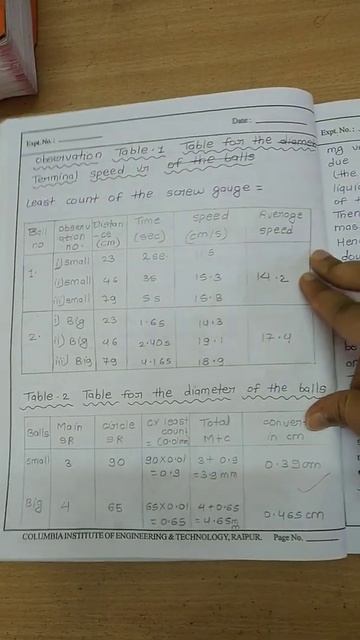 Expt. No.: Date:
Observation Table.1 Table for the diamet
Terminal speed vr of the balls
Least count of the screw gauge =
Ball no observation no. Distance (cm) Time (sec) speed (cm/s) Average speed
1. i) small 23 2 sec
ii) small 46 3s 15.3 14.2
iii) small 79 5s 15.8
2. i) Big 23 1.65 14.3
ii) Big 46 2.40s 19.1 17.4
iii) Big 79 4.165 18.9
Table-2 Table for the diameter of the balls
Balls Main SR circle SR count = (0.01mm) Total M+C convert in cm
small 3 90 90×0.01 3 + 0.9 0.39cm
= 0.9 = 3.9 mm
Big 4 65 65×0.01 4+0.65 0.465 cm
= 0.65 = 4.65m
m
COLUMBIA INSTITUTE OF ENGINEERING & TECHNOLOGY, RAIPUR. Page No.
Expt. No.:
mg v
due
(the
liqui
of t
Then
mas
Hen
dou